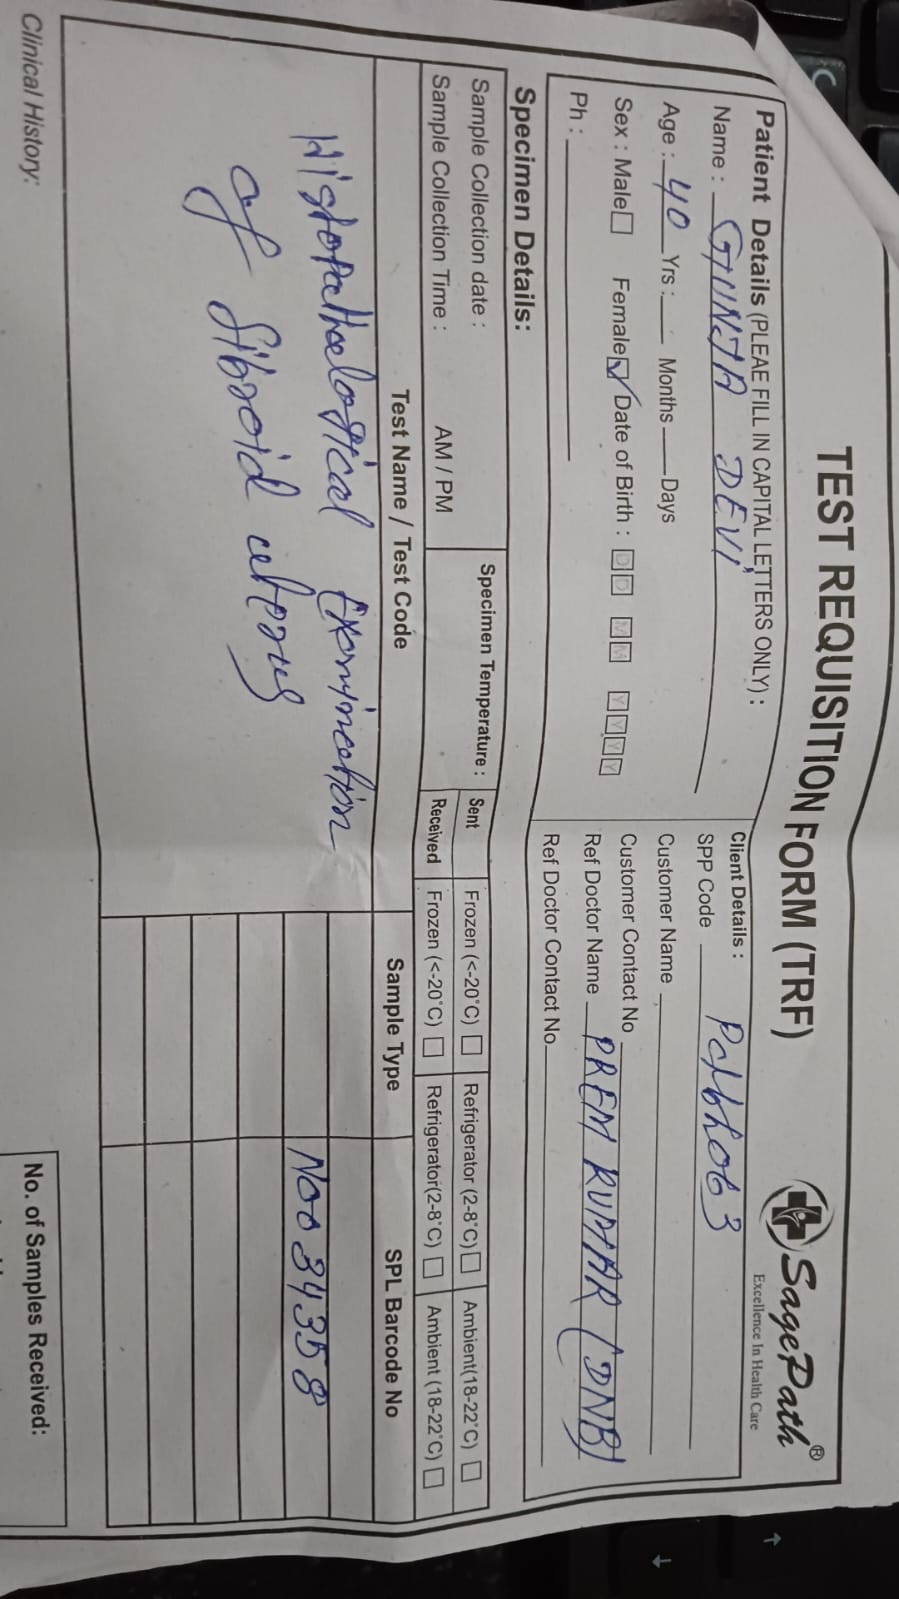 TEST REQUISITION FORM (TRF)
SagePath®
Excellence In Health Care
Patient Details (PLEAE FILL IN CAPITAL LETTERS ONLY) :
Name : GUNJA DEVI
Age : 40 Yrs : Months Days
Sex : Male Female Date of Birth : DD MM YYYY
Ph :
Client Details :
SPP Code
Customer Name
Customer Contact No
Ref Doctor Name PREM KUMAR (DNB)
Ref Doctor Contact No
Specimen Details:
Sample Collection date :
Sample Collection Time : AM / PM
Specimen Temperature :
Sent Frozen (<-20°C) Refrigerator (2-8°C) Ambient(18-22°C)
Received Frozen (<-20°C) Refrigerator(2-8°C) Ambient (18-22°C)
Test Name / Test Code Sample Type SPL Barcode No
Histopathological Examination
of fibroid uterus
Clinical History:
No. of Samples Received: